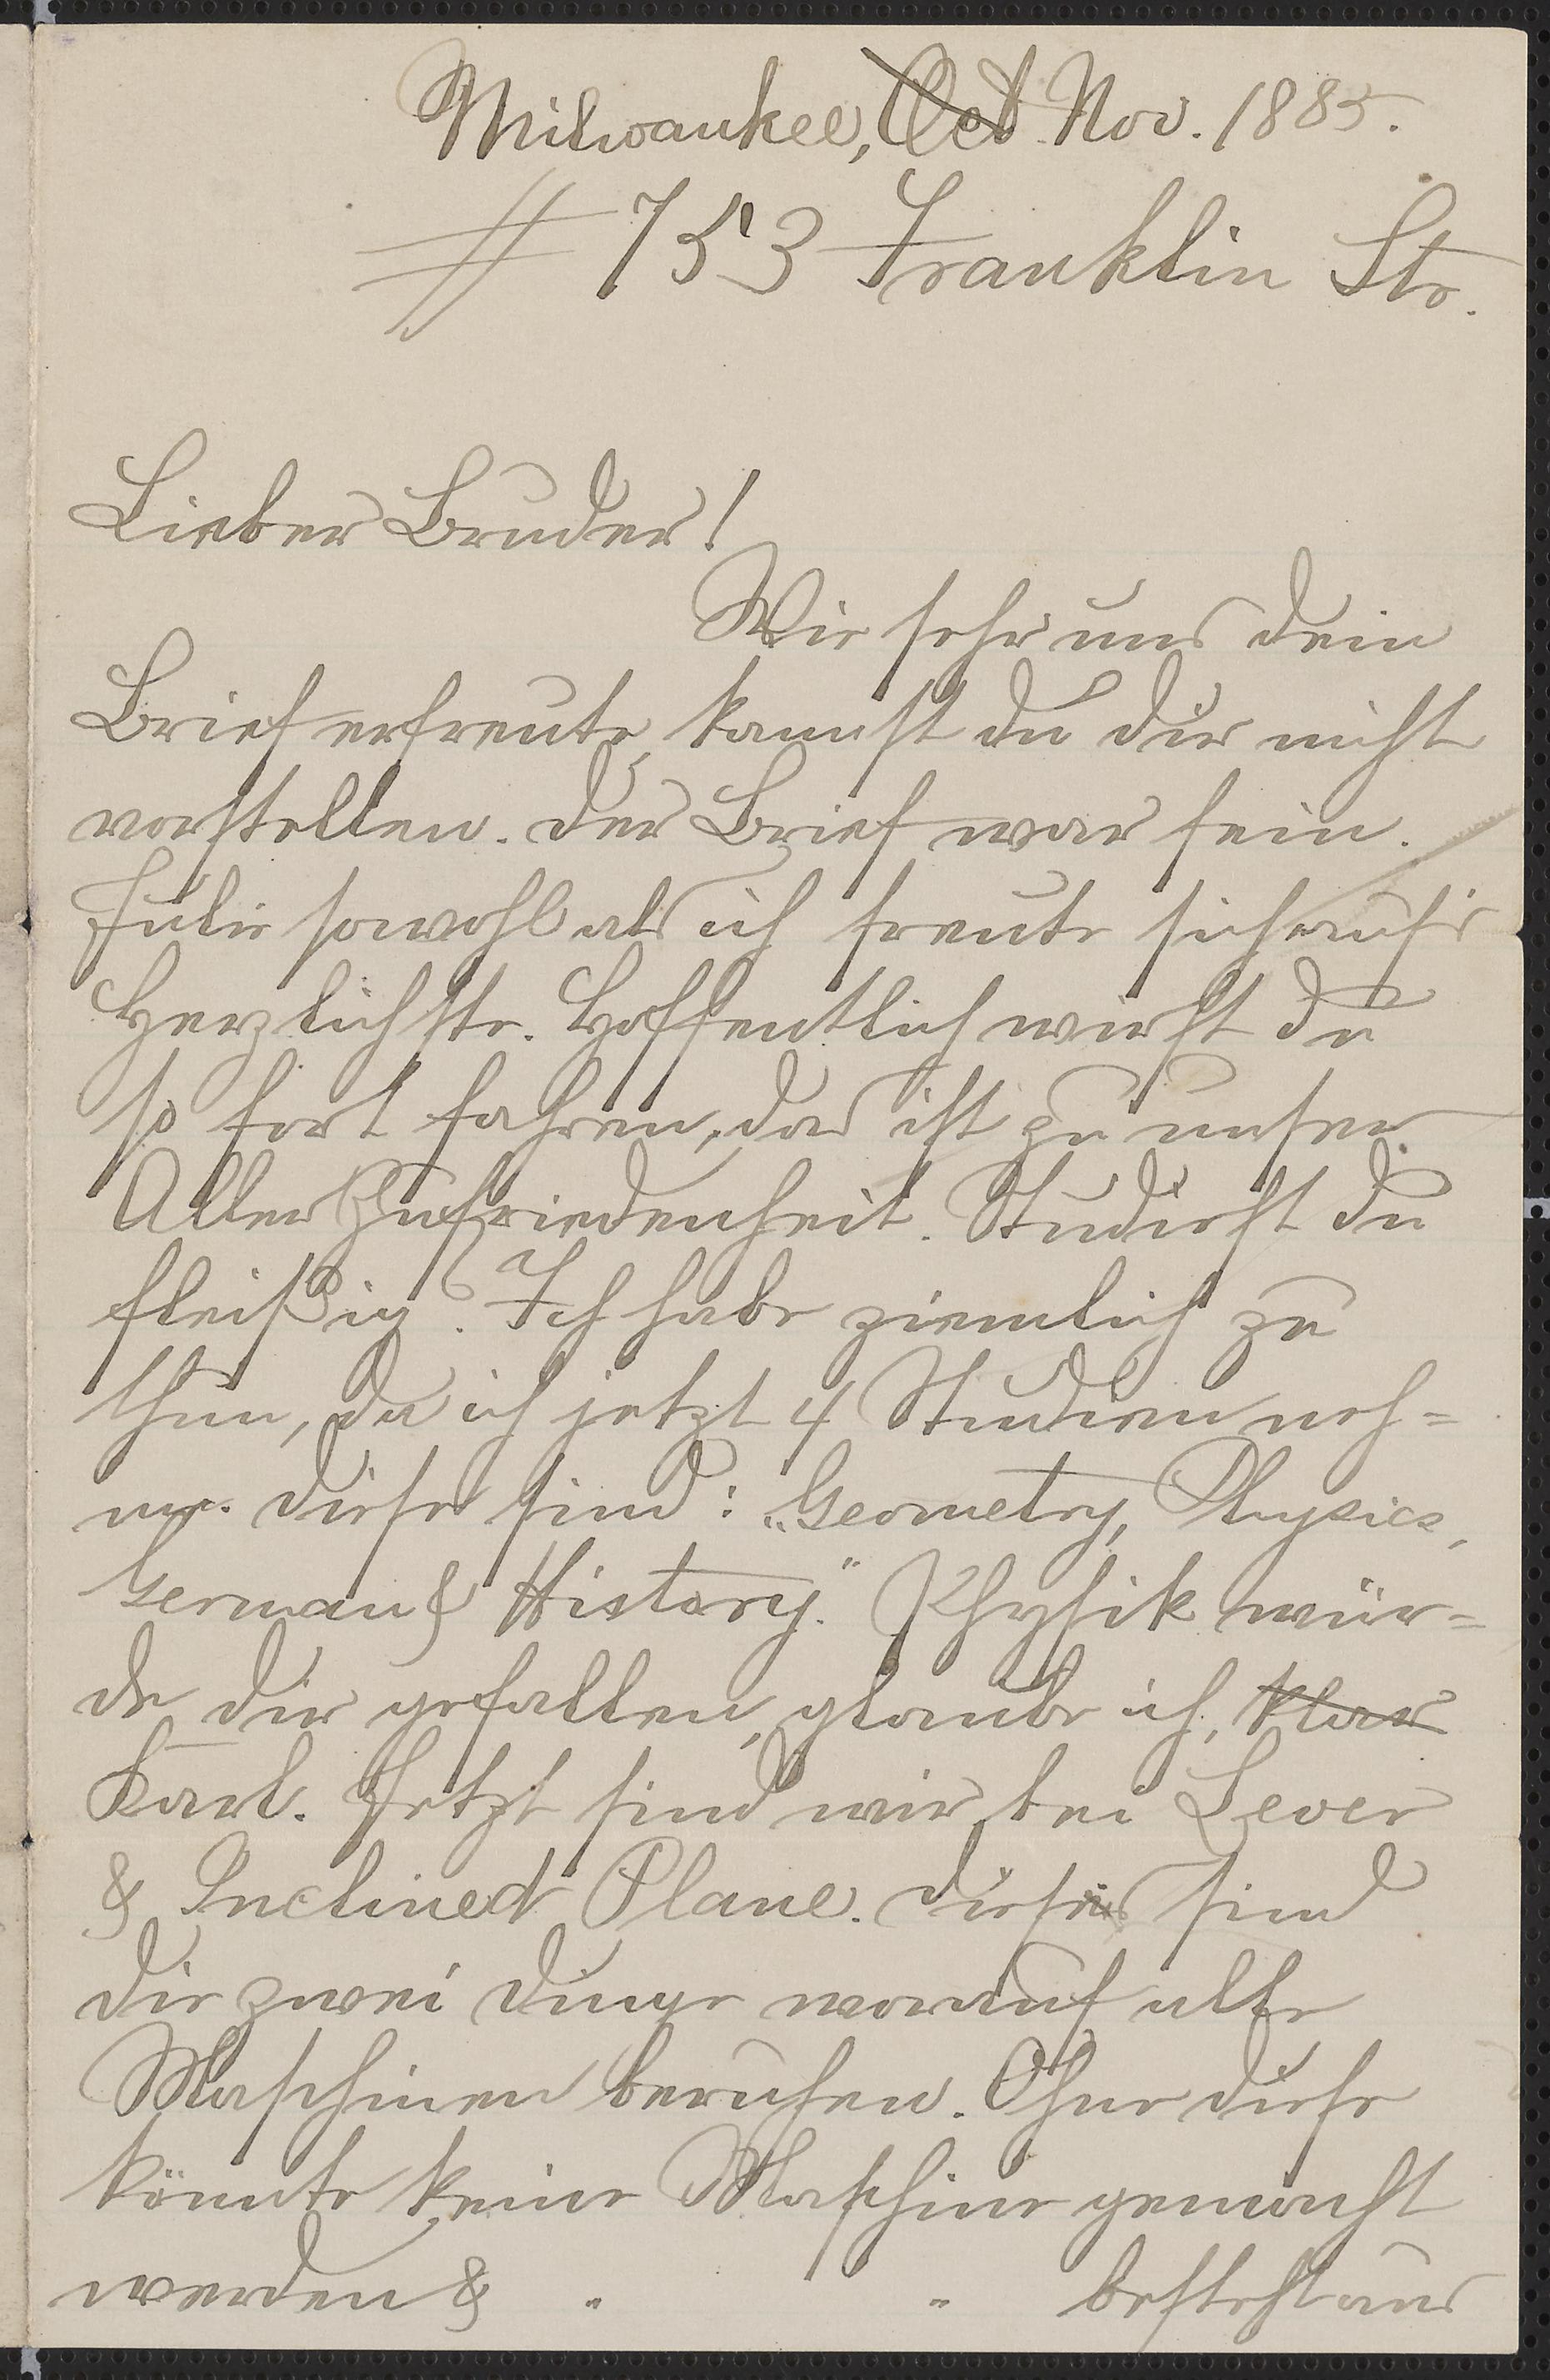 Milwaukee, Oct. Nov. 1885.
# 753 Franklin Str.
Lieber Bruder!
Wie sehr uns dein
Brief erfreute, kannst du dir nicht
vorstellen. Der Brief war fein.
Julie sowohl als ich freute sich auf's
Herzlichste. Hoffentlich wirst du
so fort fahren, das ist zu unser
Aller Zufriedenheit. Studirst du
fleißig? Ich habe ziemlich zu
thun, da ich jetzt 4 Studien neh=
me. Diese sind: „Geometry, Physics,
German & History." Physik wür=
de dir gefallen, glaube ich, Klar
Karl. Jetzt sind wir bei Lever
& Inclined Plane. Dieses sind
die zwei Dinge worauf alle
Maschinen beruhen. Ohne diese
könnte keine Maschine gemacht
werden & " " besteht aus